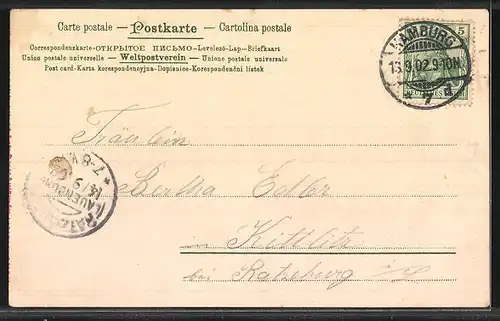 Carte postale — Postkarte — Cartolina postale
Correspondenzkarte-ОТКРЫТОЕ ПИСЬМО-Levelező-Lap-Briefkaart
Union postale universelle — Weltpostverein — Unione postale universale
Post card-Karta korespondencyjna-Dopisnice-Korespondenční lístek
HAMBURG
13.9.02.9-10N.
* 7 d
5
Fräulein
Bertha Edler
in Kittlitz
bei Ratzeburg i/L
RATZEBURG
14/9
7-8 V.